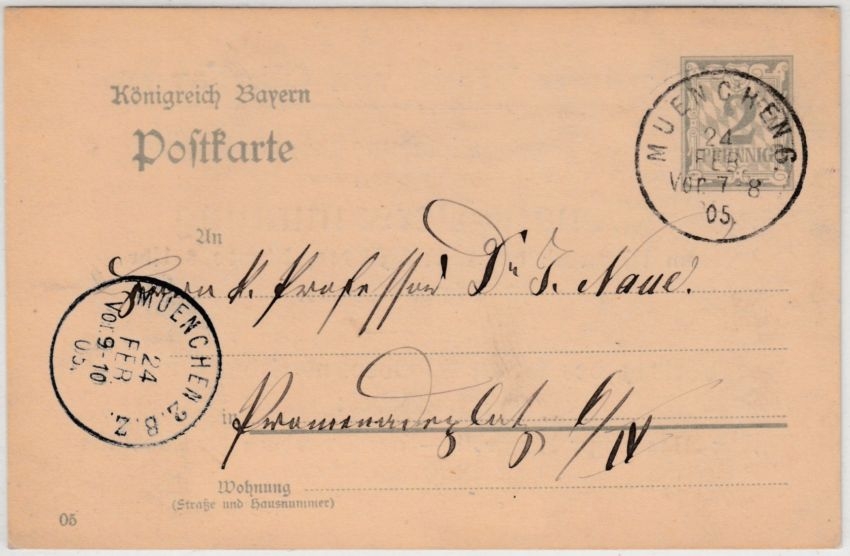 Königreich Bayern
Postkarte
2
PFENNIG
MUENCHEN 6.
24
FEB
Vor. 7-8
05
An
Herrn K. Professor Dr. J. Naue.
MUENCHEN 2. B. Z.
24
FEB
Vor. 9-10
05.
in Promenadeplatz 6/IV
Wohnung
(Straße und Hausnummer)
05